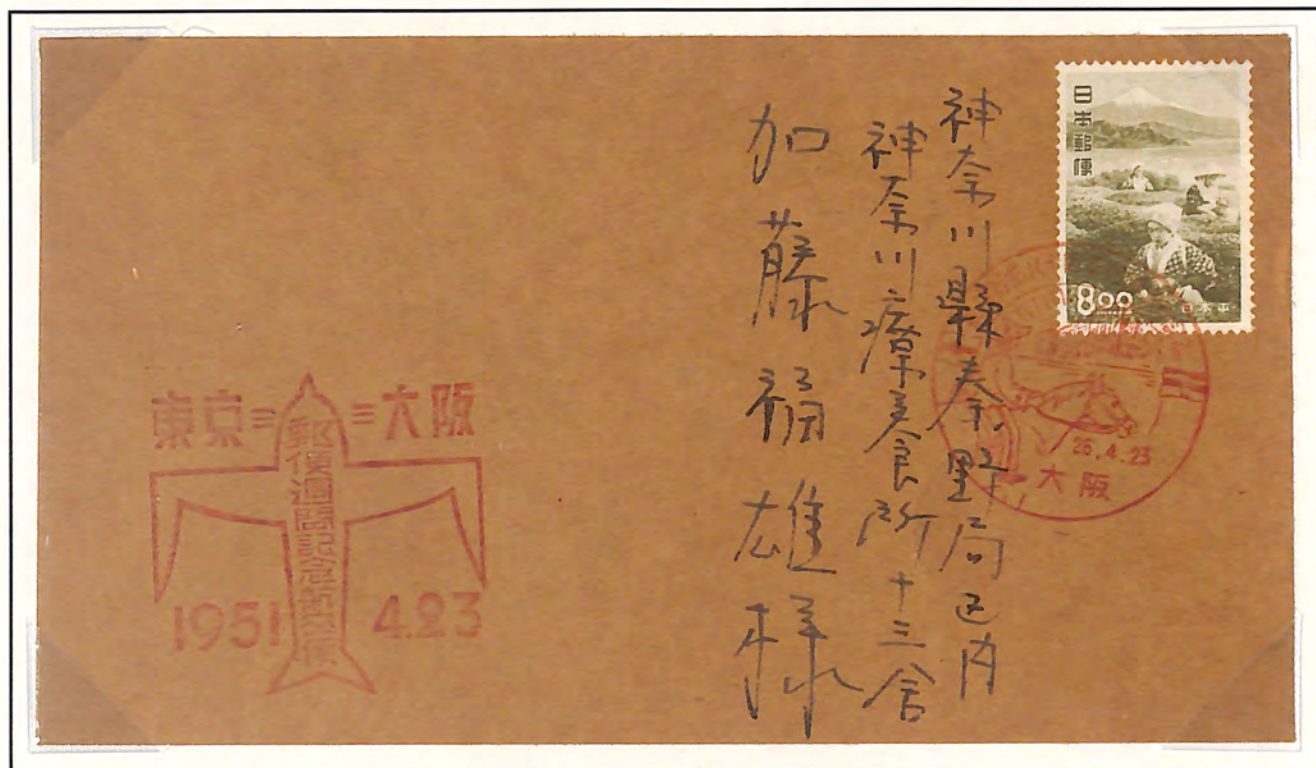 日本郵便
8.00
日本平
26.4.23
大阪
神奈川縣秦野局区内
神奈川療養所十三舎
加藤福雄様
東京 大阪
郵便週間記念
1951 4.23